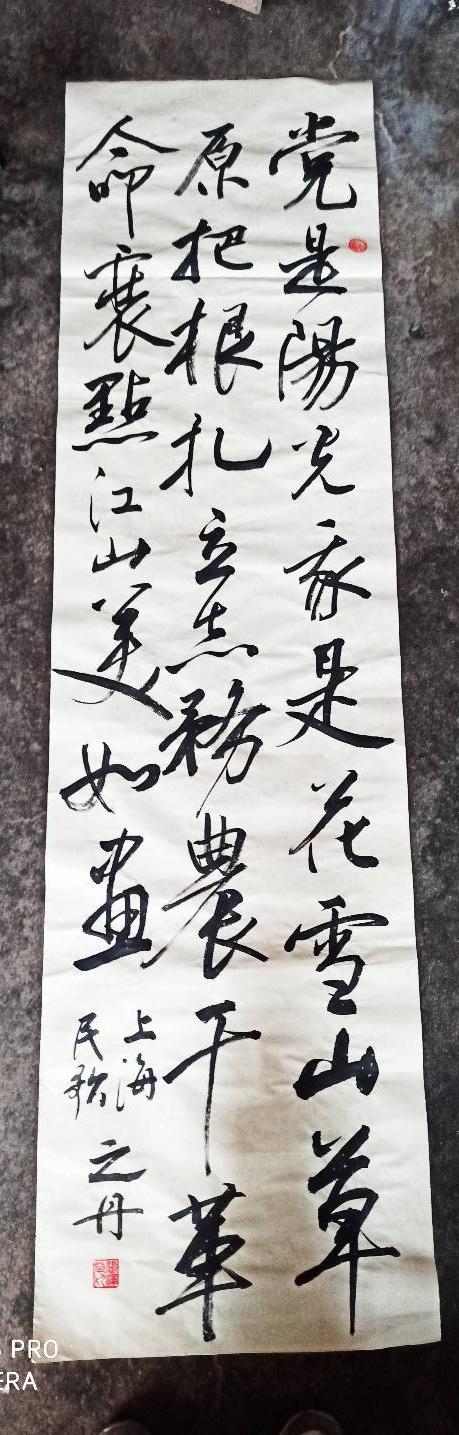 党是陽光我是花雪山草
原把根扎立志務農干革
命裝點江山美如畫
上海
民歌
之丹
PRO
ERA